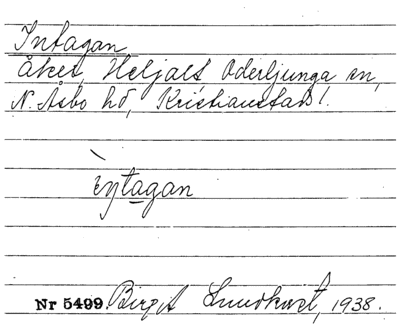 Intagan
Åker, Heljalt, Oderljunga sn,
N. Åsbo hd, Kristianstads l.
ìn̡tagan
Nr 5499. Birgit Lundkvist, 1938.